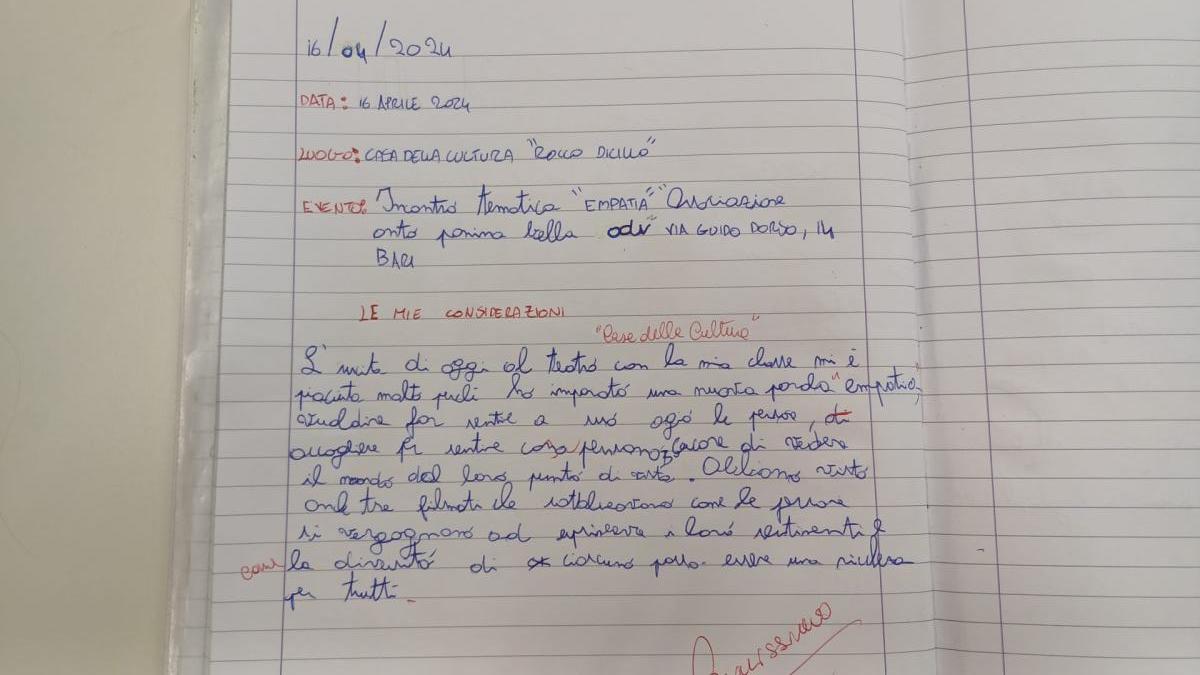 16/04/2024
DATA: 16 APRILE 2024
LUOGO: CASA DELLA CULTURA "ROCCO DICILLO"
EVENTO: Incontro tematica "EMPATIA" "Associazione
onto ponima bella odv" VIA GUIDO DORSO, 14
BARI
LE MIE CONSIDERAZIONI
"Casa delle Culture"
L'uscita di oggi al teatro con la mia classe mi è
piaciuta molto perché ho imparato una nuova parola "empatia",
vuol dire far sentire a suo agio le persone,
accogliere far sentire cosa pensano, cercare di vedere
il mondo dal loro punto di vista. Abbiamo visto
anche tre filmati che come le persone
si vergognano ad esprimere i loro sentimenti e
come la diversità di ciascuno possa essere una ricchezza
per tutti.